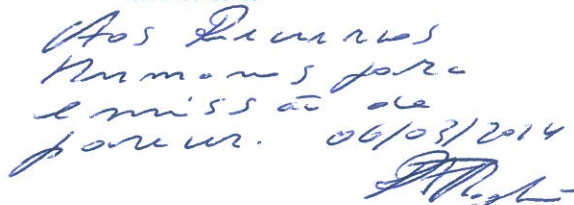 Aos Recursos
Humanos para
emissão de
parecer. 06/03/2014